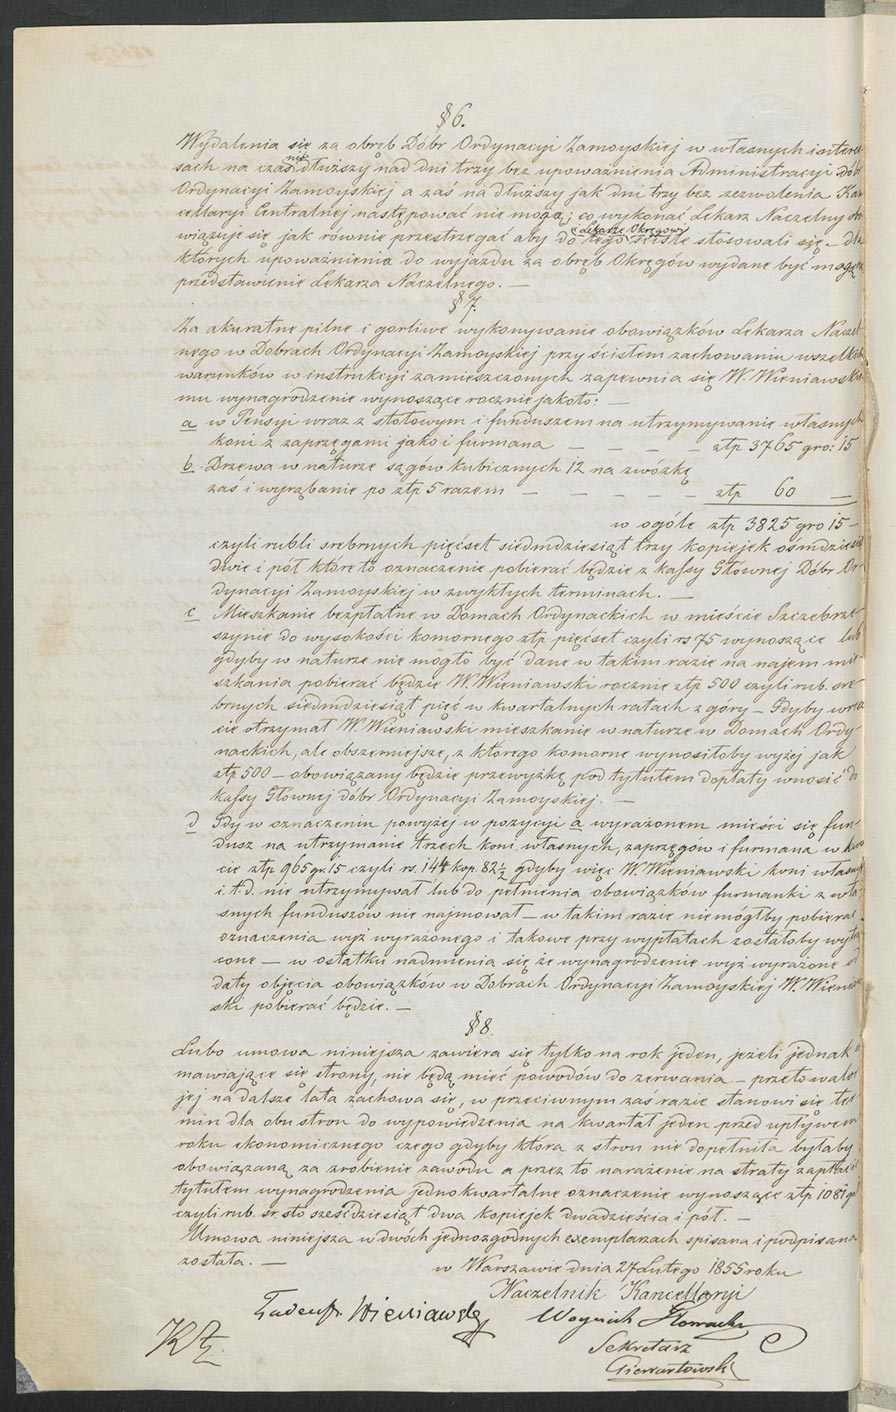 § 6.
Wydalenia się za obręb Dóbr Ordynacyi Zamoyskiej w własnych intere
sach na czas nie dłuższy nad dni trzy bez upoważnienia Administracyi dóbr
Ordynacyi Zamoyskiej a zaś na dłuższy jak dni trzy bez zezwolenia Kan
cellaryi Centralnej następować nie mogą; co wykonać Lekarz Naczelny obo
wiązuje się jak równie przestrzegać aby Lekarze Okręgowi do tego ściśle stosowali się – dla
których upoważnienia do wyjazdu za obręb Okręgów wydane być mogą na
przedstawienie Lekarza Naczelnego. —
§ 7.
Za akuratne pilne i gorliwe wykonywanie obowiązków Lekarza Naczel
nego w Dobrach Ordynacyi Zamoyskiej przy ścisłem zachowaniu wszelkich
warunków w instrukcyi zamieszczonych zapewnia się W. Wieniawskie
mu wynagrodzenie wynoszące rocznie jakoto: —
a w Pensyi wraz z stołowym i funduszem na utrzymywanie własnych
koni z zaprzęgami jako i furmana — — — — złp 3765 gro: 15
b. Drzewa w naturze sągów kubicznych 12 na zwózkę
zaś i wyrąbanie po złp 5 razem — — — — — złp 60 —
w ogóle złp 3825 gro 15 –
czyli rubli srebrnych pięćset siedmdziesiąt trzy kopiejek ośmdziesiąt
dwie i pół które to oznaczenie pobierać będzie z kassy Głównej Dóbr Or-
dynacyi Zamoyskiej w zwykłych terminach. —
c Mieszkanie bezpłatne w Domach Ordynackich w mieście Szczebrze-
szynie do wysokości komornego złp pięćset czyli rs 75 wynoszące lub
gdyby w naturze nie mogło być dane w takim razie na najem mie
szkania pobierać będzie W. Wieniawski rocznie złp 500 czyli rub. sre-
brnych siedmdziesiąt pięć w kwartalnych ratach z góry – Gdyby wresz
cie otrzymał W. Wieniawski mieszkanie w naturze w Domach Ordy-
nackich, ale obszerniejsze, z którego komorne wynosiłoby wyżej jak
złp 500 – obowiązany będzie przewyżkę pod tytułem dopłaty wnosić do
kassy Głównej dóbr Ordynacyi Zamoyskiej. —
d Gdy w oznaczeniu powyżej w pozycyi a wyrażonem mieści się fun-
dusz na utrzymanie trzech koni własnych, zaprzęgów i furmana w kwo
cie złp 965 gr. 15 czyli rs. 144 kop. 82½ gdyby więc W. Wieniawski koni własnych
i t.d. nie utrzymywał lub do pełnienia obowiązków furmanki z wła-
snych funduszów nie najmował – w takim razie niemógłby pobierać
oznaczenia wyż wyrażonego i takowe przy wypłatach zostałoby wytrą
cone – w ostatku nadmienia się że wynagrodzenie wyż wyrażone od
daty objęcia obowiązków w Dobrach Ordynacyi Zamoyskiej W. Wieniaw
ski pobierać będzie. —
§ 8.
Lubo umowa niniejsza zawiera się tylko na rok jeden, jeżeli jednak
mawiające się strony, nie będą mieć powodów do zerwania – przeto walor
jej na dalsze lata zachowa się, w przeciwnym zaś razie stanowi się ter
min dla obu stron do wypowiedzenia na kwartał jeden przed upływem
roku ekonomicznego czego gdyby która z stron nie dopełniła byłaby
obowiązaną za zrobienie zawodu a przez to narażenie na straty zapłacić
tytułem wynagrodzenia jednokwartalne oznaczenie wynoszące złp 1081 gr
czyli rub. sr. sto sześćdziesiąt dwa kopiejek dwadzieścia i pół. —
Umowa niniejsza w dwóch jednozgodnych exemplarzach spisana i podpisana
została. —
w Warszawie dnia 27 Lutego 1855 roku
Naczelnik Kancellaryi
Tadeusz Wieniawski
Wojciech
Sekretarz